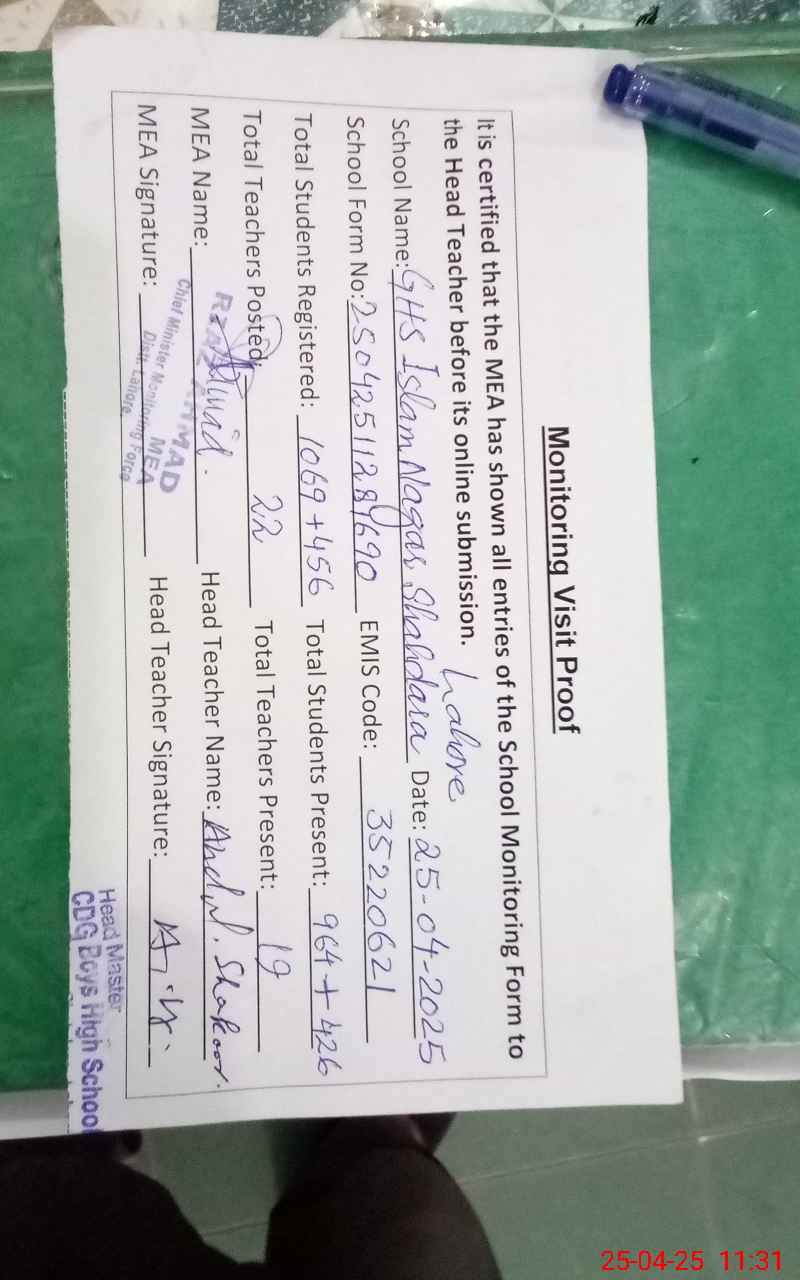 Monitoring Visit Proof
It is certified that the MEA has shown all entries of the School Monitoring Form to
the Head Teacher before its online submission.
Lahore
School Name: GHS Islam Nagar Shahdara Date: 25-04-2025
School Form No: EMIS Code: 35220621
Total Students Registered: 1069+456 Total Students Present: 964+426
Total Teachers Posted: 22 Total Teachers Present: 19
MEA Name: Head Teacher Name: Shakoor.
MEA Signature: Head Teacher Signature:
AHMAD
MEA
Chief Minister Monitoring Force
Distt. Lahore
Head Master
CDG Boys High School
25-04-25 11:31